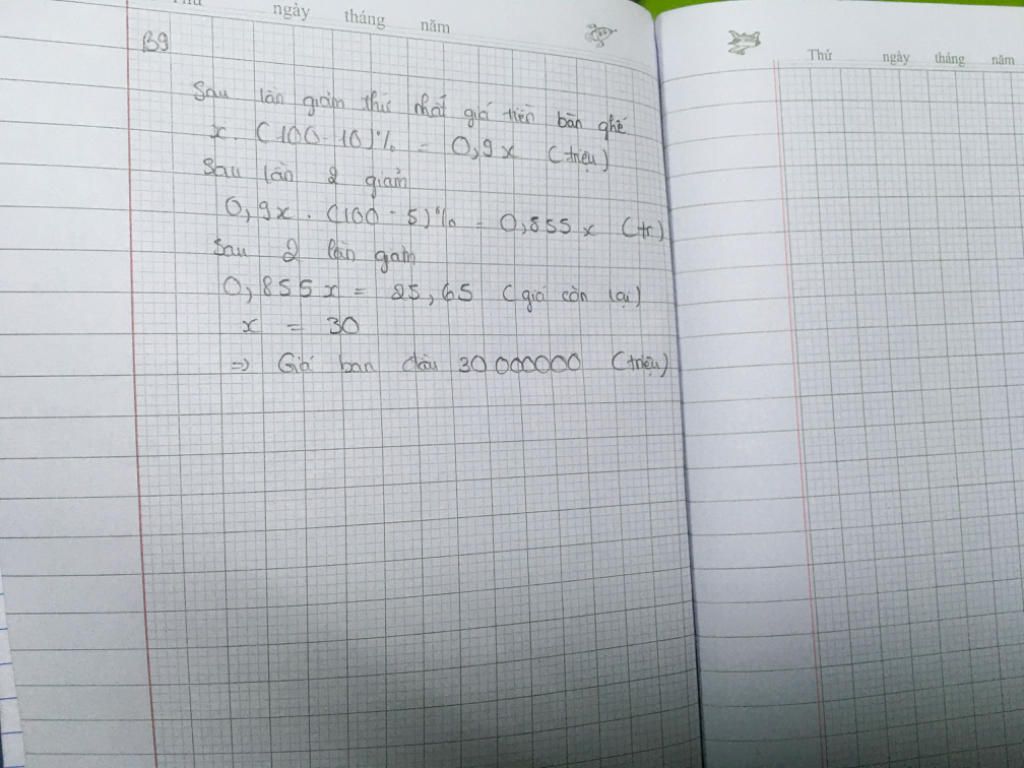 ngày tháng năm
B9
Sau lần giảm thứ nhất giá tiền bàn ghế
x . (100 - 10)% = 0,9x (triệu)
Sau lần 2 giảm
0,9x . (100 - 5)% = 0,855x (tr)
Sau 2 lần gam
0,855x = 25,65 (giá còn lại)
x = 30
=> Giá ban đầu 30 000000 (triệu)
Thứ ngày tháng năm